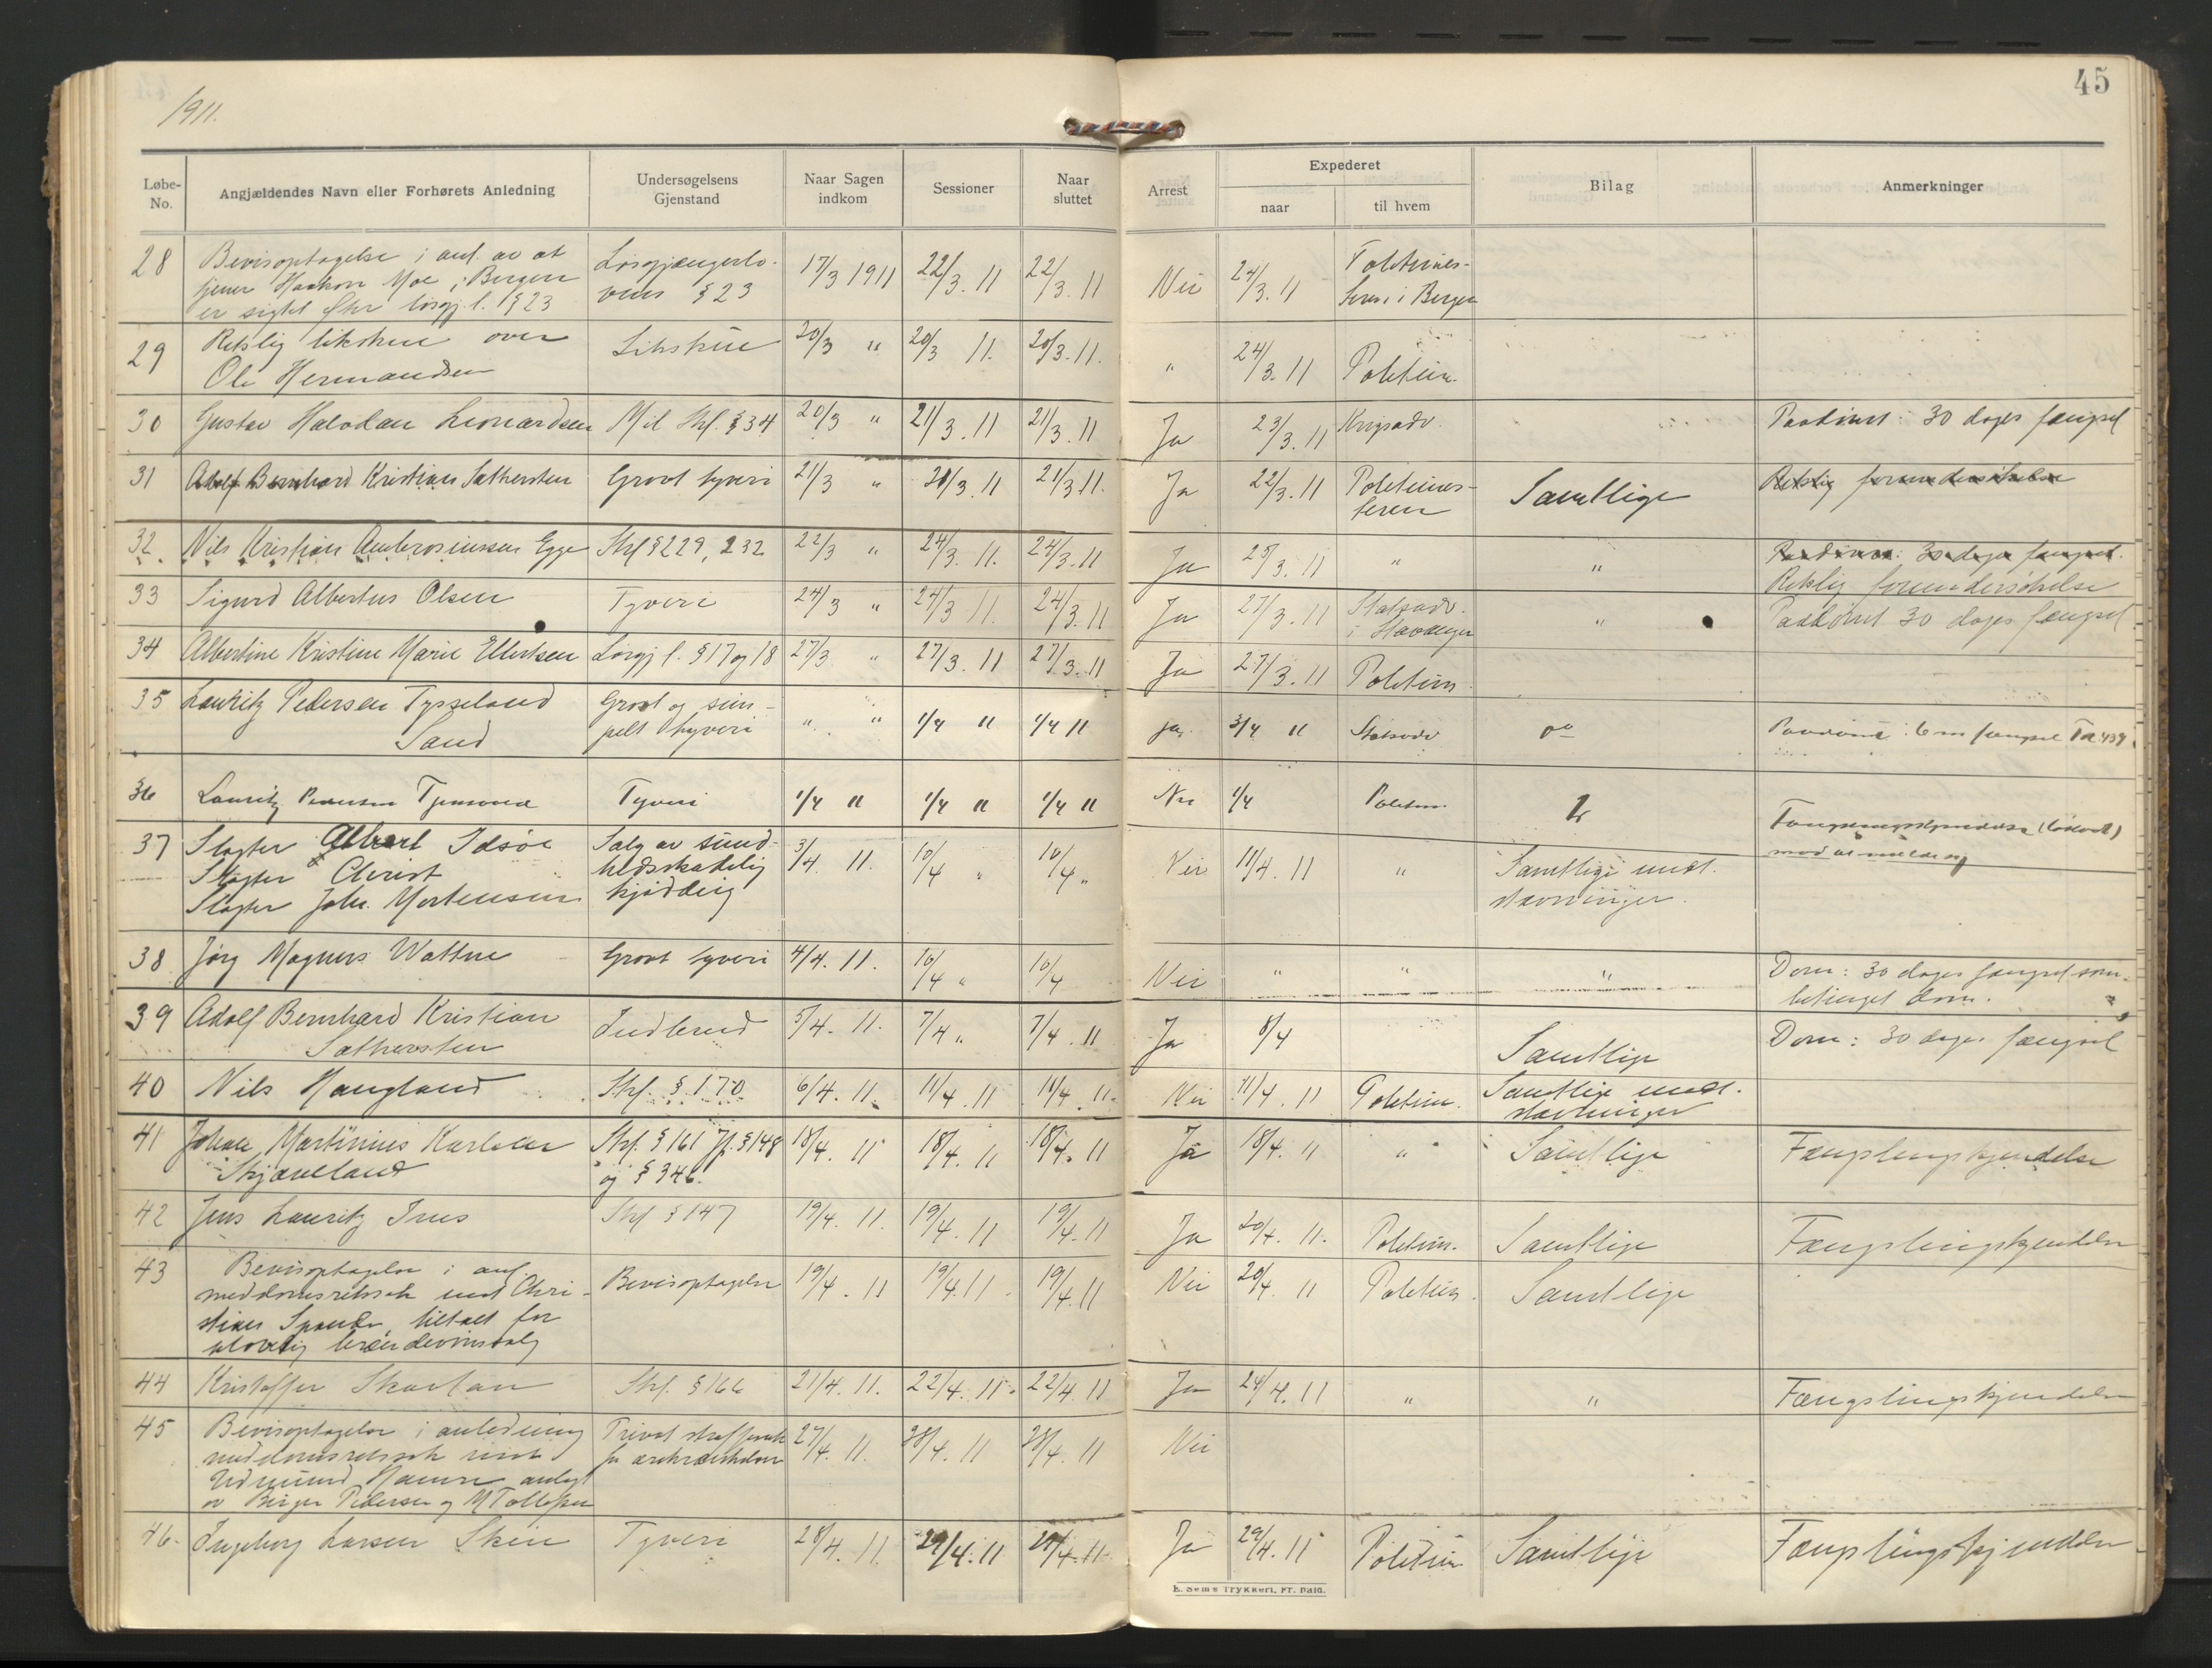 1911.
45
Løbe-No. Angjældendes Navn eller Forhørets Anledning Undersøgelsens Gjenstand Naar Sagen indkom Sessioner Naar sluttet Arrest Expederet naar til hvem Bilag Anmerkninger
28 Bevisoptagelse i anl. av at Løsgjængerlo- 17/3 1911 22/3. 11 22/3. 11 Nei 24/3. 11
tjener Haakon Moe i Bergen vens § 23 i Bergen
er sigtet efter løsgj. l. § 23
29 Retslig likskue over Likskue 20/3 " 20/3 11. 20/3. 11. " 24/3. 11 Politim.
Ole Hermandsen
30 Gustav Halvdan Leonardsen Mil Strl. § 34 20/3 " 21/3. 11 21/3. 11 Ja 23/3. 11 Krigsadv. Paadømt: 30 dages fængsel
31 Adolf Bernhard Kristian Sathersten Grovt tyveri 21/3 " 21/3. 11 21/3. 11. Ja 22/3. 11 Politimes- Samtlige Retslig forundersøkelse
teren
32. Nils Kristian Ambrosiussen Egge Strl § 229, 232 22/3 " 24/3. 11. 24/3. 11 Ja 25/3. 11 " " Paadømt: 30 dages fængsel.
Retslig forundersøkelse
33 Sigurd Albertus Olsen Tyveri 24/3 " 24/3 11. 24/3. 11 Ja 27/3. 11 Statsadv. " Paadømt 30 dages fængsel
i Stavanger
34 Albertine Kristine Marie Ellertsen Løsgj l. § 17 og 18 27/3 " 27/3. 11 27/3. 11 Ja 27/3. 11 Politim
35 Lauritz Pedersen Tysseland Grovt og sim- " " 1/4 " 1/4 11 ja. 3/4 " Statsadv do Paadømt: 6 m fængsel
Sand pelt tyveri
36 Lauritz Pedersen Tyveri 1/4 " 1/4 " 1/4 " Nei 1/4 Politim. 1
37 Slagter Albert Idsøe Salg av sund- 3/4 11. 10/4 " 10/4 " Nei 11/4. 11 " Samtlige undt.
Slagter Christ hedsskadelig stevninger.
Slagter Johs. Mortensen kjødderig
38 Jørg Magnus Wattne Grovt tyveri 4/4. 11. 10/4 " 10/4 Nei " " " Dom: 30 dages fængsel
betinget dom.
39 Adolf Bernhard Kristian Indbrud 5/4. 11. 7/4 " 7/4. 11 Ja 8/4 Samtlige Dom: 30 dages fængsel
Sathersten
40 Nils Haugland Strl. § 170 6/4. 11. 11/4. 11 11/4. 11. Nei 11/4. 11 Politim. Samtlige undt.
stevninger
41 Johan Martinius Karlsen Strl. § 161 jf. § 148 18/4. 11 18/4. 11 18/4. 11 Ja 18/4. 11 " Samtlige Fængslingskjendelse
Skjæveland og § 346.
42 Jens Lauritz Strl § 147 19/4. 11. 19/4. 11 19/4. 11 Ja 20/4. 11. Politim. Samtlige Fængslingskjendelse
43 Bevisoptagelse i anl. Bevisoptagelse 19/4. 11 19/4. 11 19/4. 11 Nei 20/4. 11 Politim. Samtlige
meddomsretssak mot Chri-
stian tiltalt for
ulovlig brændevinssalg
44 Kristoffer Skartan Strl. § 166 21/4. 11. 22/4. 11. 22/4 11 Ja 24/4. 11 " " Fængslingskjendelse
45 Bevisoptagelse i anledning Privat straffesak 27/4. 11. 28/4. 11 28/4. 11 Nei
meddomsretssak mot for ærekrænkelser
Hamre anlagt
av Birger Pedersen og M Tollefsen
46. Ingeborg Larsen Skeie Tyveri 28/4. 11. 29/4. 11 29/4. 11 Ja 29/4. 11 Politim Samtlige Fængslingskjendelse
E. Sem's Trykkeri, Fr. hald.